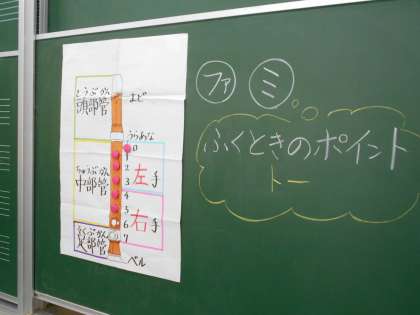 とうぶかん
頭部管
まど
うらあな
0
1
2
3
左手
ちゅうぶかん
中部管
4
5
6
7
右手
そくぶかん
足部管
ベル
ファ ミ
ふくときのポイント
トー